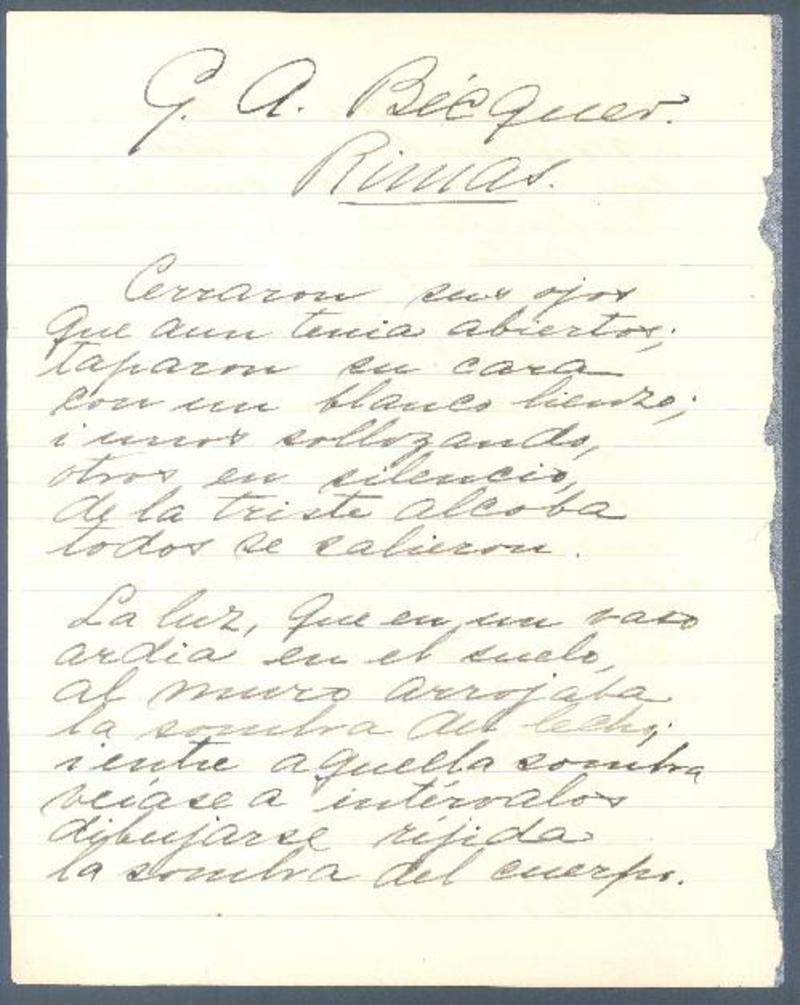 G. A. Bécquer.
Rimas.
Cerraron sus ojos
que aun tenia abiertos;
taparon su cara
con un blanco lienzo;
i unos sollozando,
otros en silencio,
de la triste alcoba
todos se salieron.
La luz, que en un vaso
ardia en el suelo,
al muro arrojaba
la sombra del lecho;
i entre aquella sombra
veíase a intérvalos
dibujarse ríjida
la sombra del cuerpo.